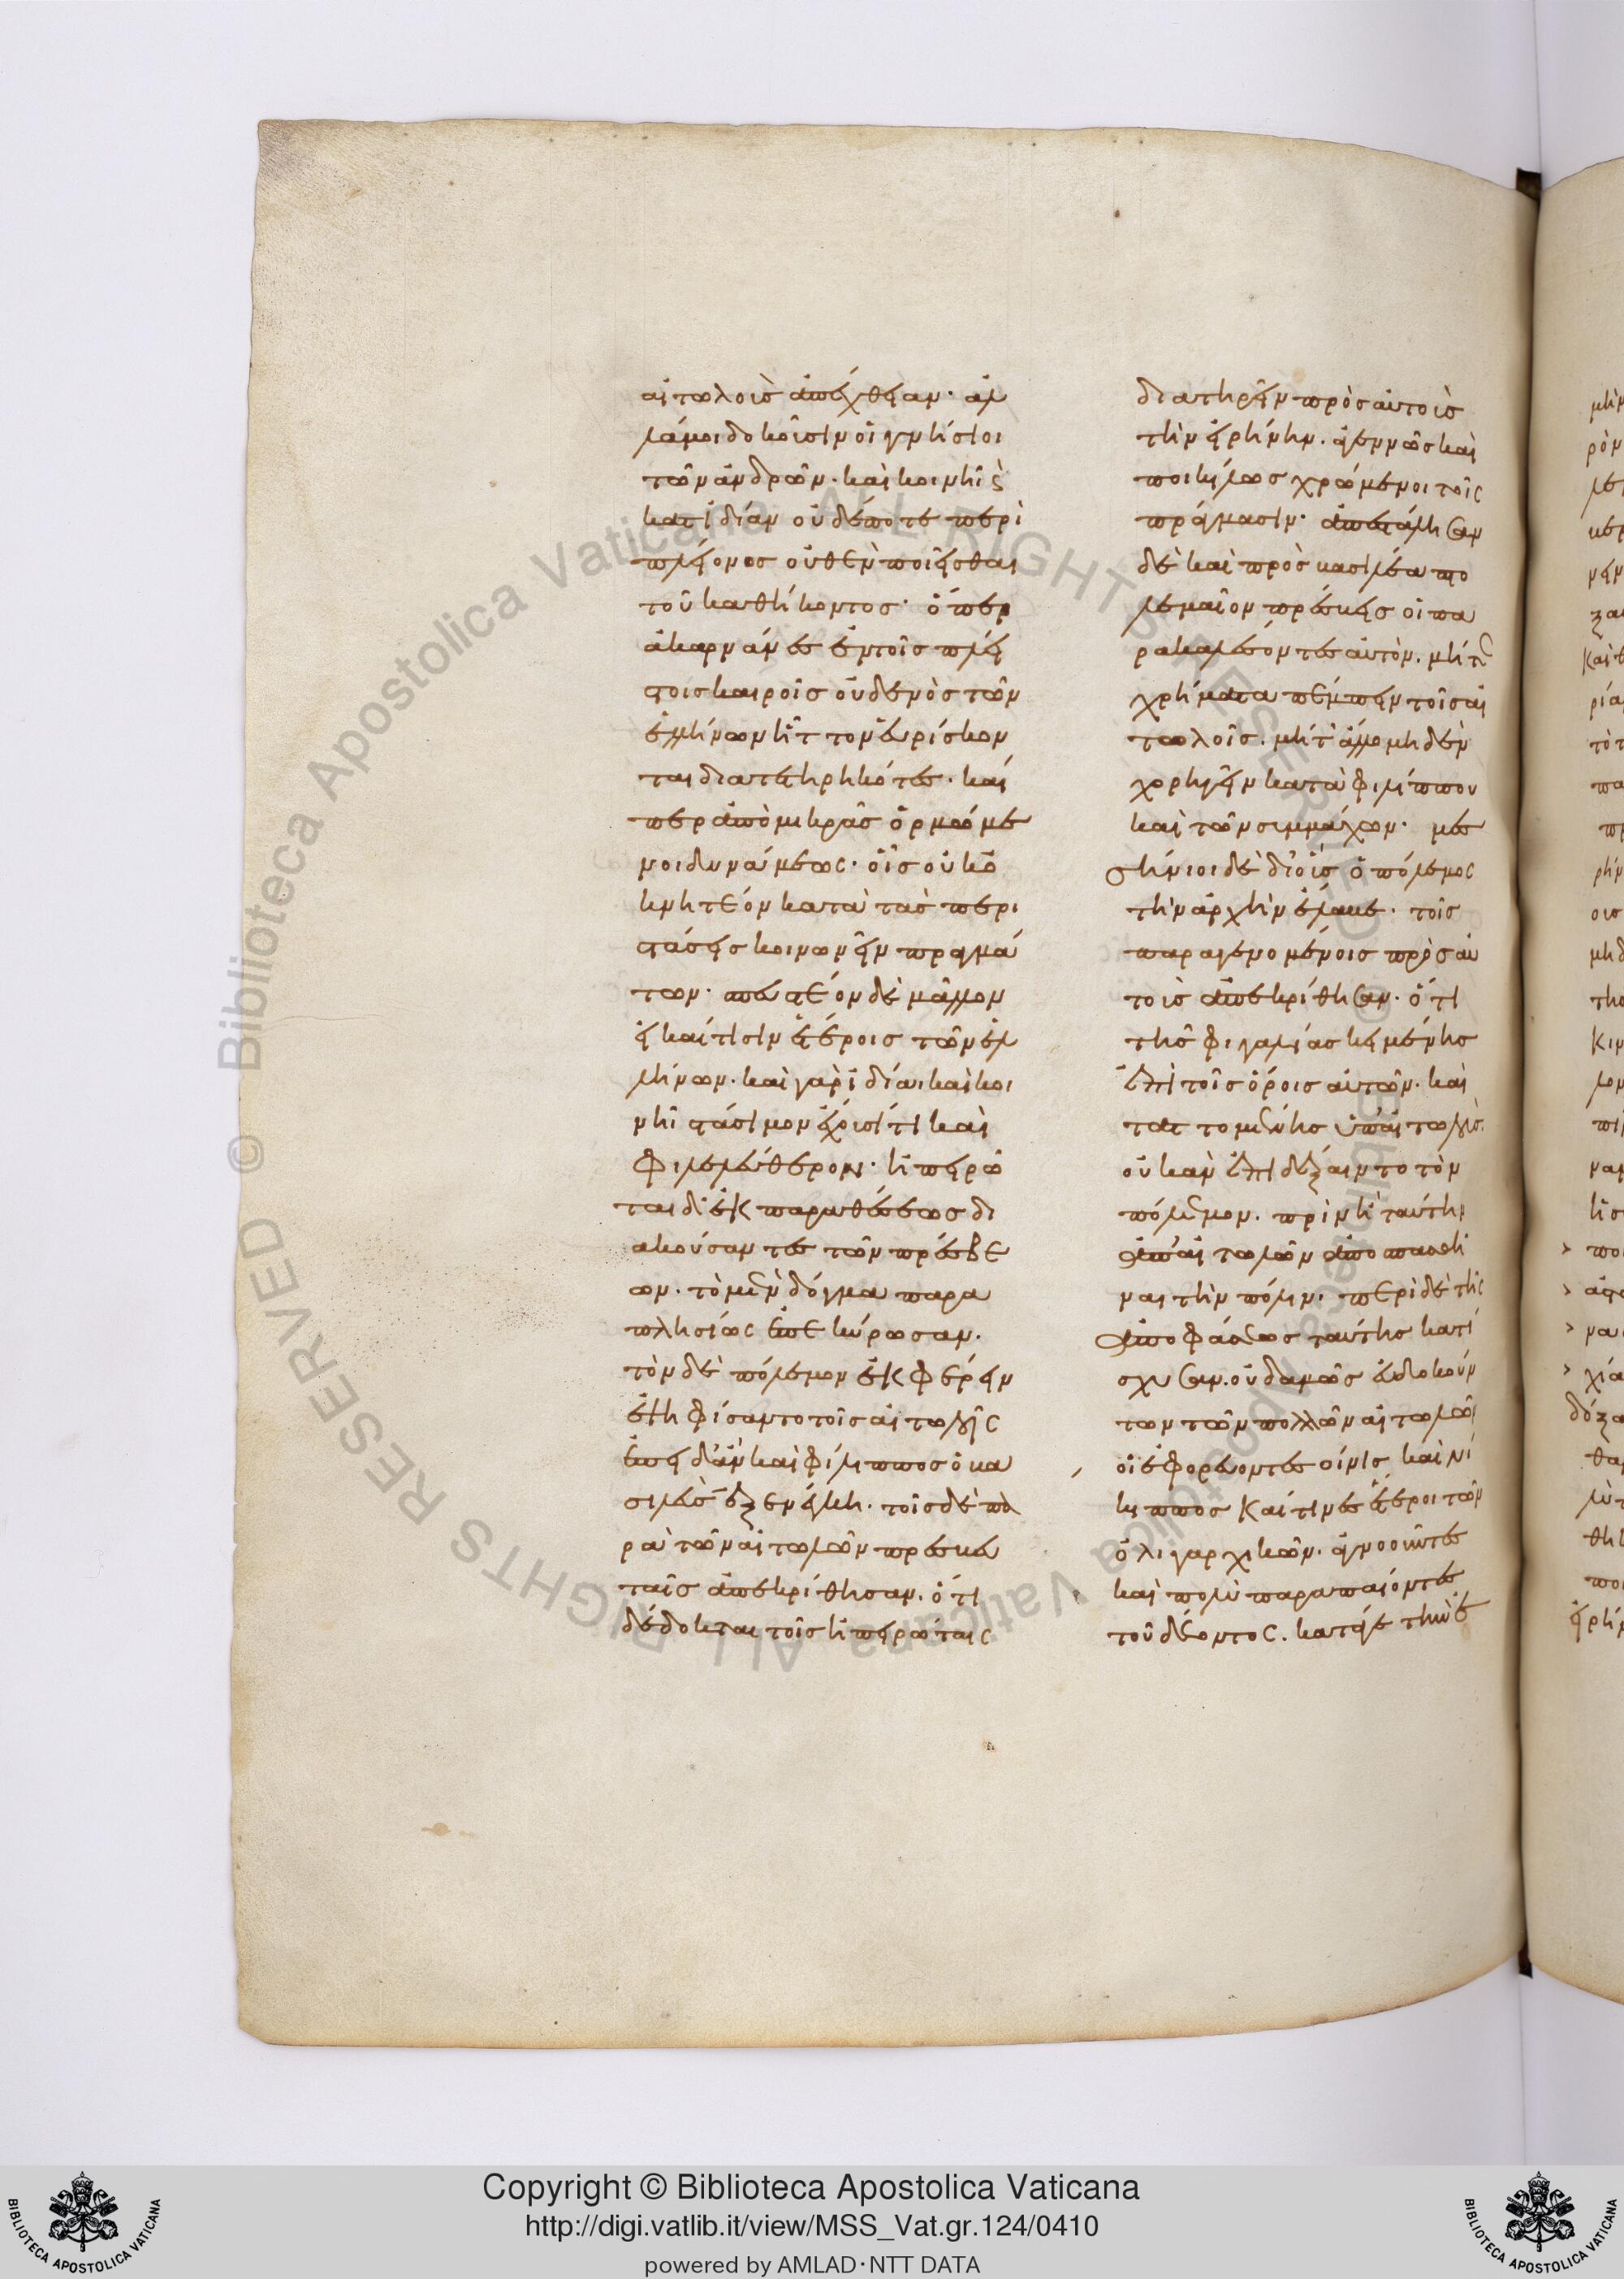 αἰτωλοῖς ἀπέχθειαν· ἀλ
λά μοι δοκοῦσιν οἱ γνήσιοι
τῶν ἀνδρῶν. καὶ κοινῆι ϛ
κατ ἰδίαν οὐδέποτε περὶ
πλείονος οὐθὲν ποιεῖσθαι
τοῦ καθήκοντος· ὅπερ
ἀκαρνάνες ἐν τοῖς πλεί
στοις καιροῖς οὐδενὸς τῶν
ἑλλήνων ἧττον εὑρίσκον
ται διατετηρηκότες. καί
περ ἀπὸ μικρᾶς ὁρμώμε
νοι δυνάμεως· οἷς οὐκ ὀ
κνητέον κατὰ τὰς περι
στάσεις κοινωνεῖν πραγμά
των· σπευστέον δὲ μᾶλλον
εἰ καί τισιν ἑτέροις τῶν ἑλ
λήνων. καὶ γὰρ ἰδίαι καὶ κοι
νῆι στάσιμον ἔχουσί τι καὶ
φιλελεύθερον· ἠπειρῶ
ται δ ἐκ παραθέσεως δι
ακούσαντες τῶν πρέσβε
ων. τὸ μὲν δόγμα παρα
πλησίως ἐπεκύρωσαν.
τὸν δὲ πόλεμον ἐκφέρειν
ἐψηφίσαντο τοῖς αἰτωλοῖς
ἐπειδὰν καὶ φίλιππος ὁ βα
σιλεὺς ἐξενέγκηι. τοῖς δὲ πα
ρὰ τῶν αἰτωλῶν πρεσβευ
ταῖς ἀπεκρίθησαν. ὅτι
δέδοκται τοῖς ἠπειρώταις
διατηρεῖν πρὸς αὐτοὺς
τὴν εἰρήνην. ἀγεννῶς καὶ
ποικίλως χρώμενοι τοῖς
πράγμασιν· ἀπεστάλησαν
δὲ καὶ πρὸς βασιλέα πτο
λεμαῖον πρέσβεις οἱ πα
ρακαλέσοντες αὐτὸν. μήτε
χρήματα πέμπειν τοῖς αἰ
τωλοῖς. μήτ ἄλλο μηδὲν
χορηγεῖν κατὰ φιλίππου
καὶ τῶν συμμάχων· μεσ
σήνιοι δὲ δι οὓς ὁ πόλεμος
τὴν ἀρχὴν ἔλαβε. τοῖς
παραγενομένοις πρὸς αὐ
τοὺς ἀπεκρίθησαν. ὅτι
τῆς φιγαλείας κειμένης
ἐπὶ τοῖς ὅροις αὐτῶν. καὶ
ταττομένης ὑπ αἰτωλοῖς.
οὐκ ἂν ἐπιδέξαιντο τὸν
πόλεμον. πρὶν ἢ ταύτην
ἀπ αἰτωλῶν ἀποσπασθῆ
ναι τὴν πόλιν. περὶ δὲ τῆς
ἀποφάσεως ταύτης κατί
σχυσαν. οὐδαμῶς εὐδοκούν
των τῶν πολλῶν αἰτωλῶν
οἱ ἐφορεύοντες οἶνις καὶ νί
κιππος καί τινες ἕτεροι τῶν
ὀλιγαρχικῶν. ἀγνοοῦντες
καὶ πολὺ παραπαίοντες
τοῦ δέοντος. κατά γε τὴν ἐ